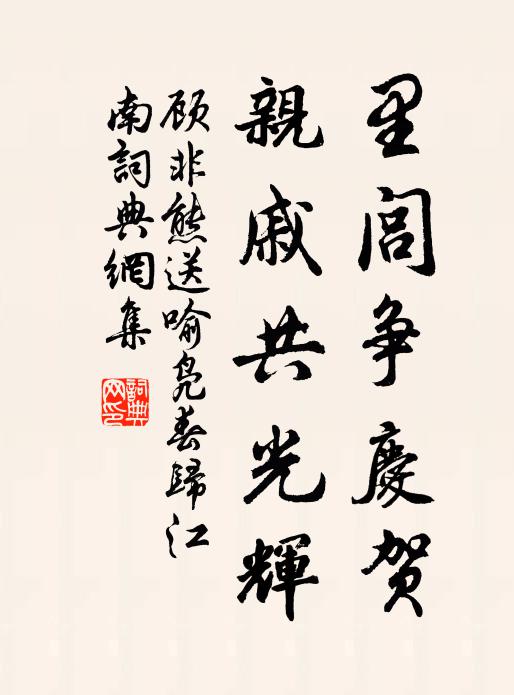 里闾争慶贺
親戚共光輝
顾非熊送喻凫春歸江
南詞典網集
詞典
网印